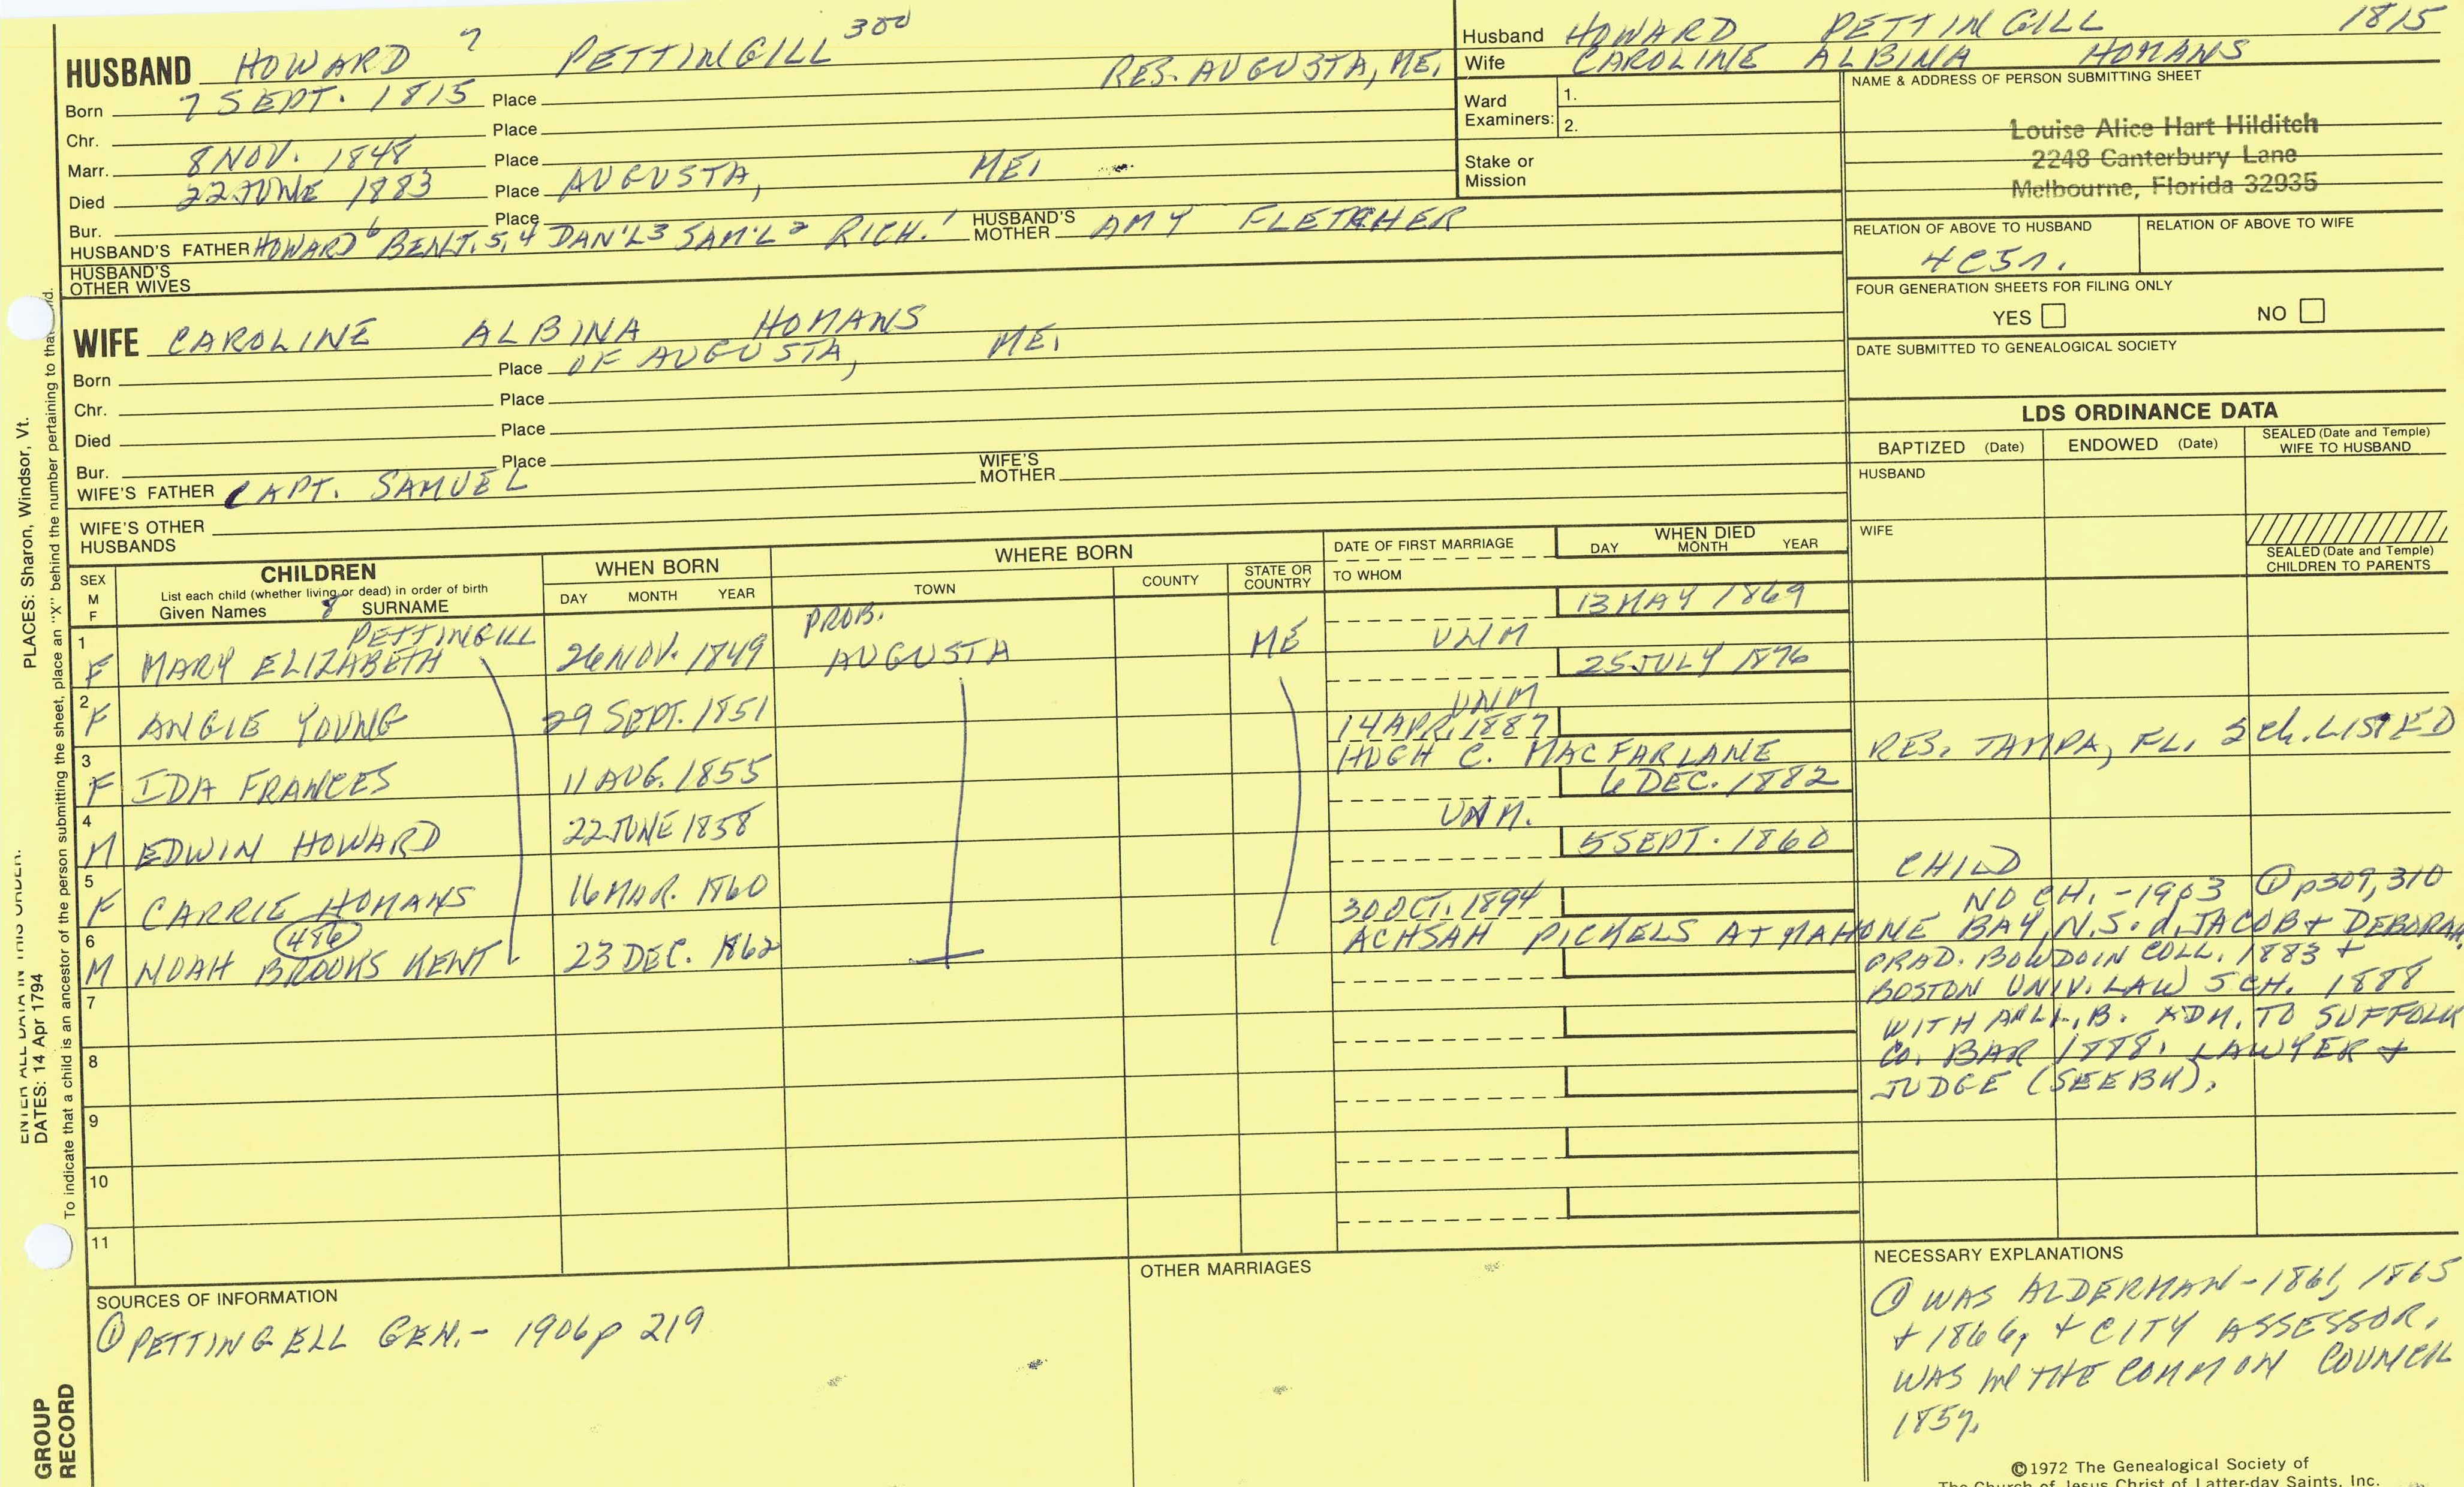 HUSBAND HOWARD 7 PETTINGILL 300 RES. AUGUSTA, ME.
Born 7 SEPT. 1815 Place
Chr. Place
Marr. 8 NOV. 1848 Place
Died 22 JUNE 1883 Place AUGUSTA, ME.
Bur. Place
HUSBAND'S FATHER HOWARD 6 BENJ. 5, 4 DAN'L 3 SAM'L 2 RICH. 1 HUSBAND'S MOTHER AMY FLETCHER
HUSBAND'S OTHER WIVES
Husband HOWARD PETTINGILL 1815
Wife CAROLINE ALBINA HOMANS
Ward Examiners: 1.
2.
Stake or Mission
NAME & ADDRESS OF PERSON SUBMITTING SHEET
Louise Alice Hart Hilditch
2248 Canterbury Lane
Melbourne, Florida 32935
RELATION OF ABOVE TO HUSBAND RELATION OF ABOVE TO WIFE
4C5r.
FOUR GENERATION SHEETS FOR FILING ONLY
YES NO
DATE SUBMITTED TO GENEALOGICAL SOCIETY
WIFE CAROLINE ALBINA HOMANS
Born Place OF AUGUSTA, ME.
Chr. Place
Died Place
Bur. Place
WIFE'S FATHER CAPT. SAMUEL WIFE'S MOTHER
WIFE'S OTHER HUSBANDS
LDS ORDINANCE DATA
BAPTIZED (Date) ENDOWED (Date) SEALED (Date and Temple) WIFE TO HUSBAND
HUSBAND
WIFE
SEALED (Date and Temple) CHILDREN TO PARENTS
SEX M F CHILDREN WHEN BORN WHERE BORN DATE OF FIRST MARRIAGE WHEN DIED
List each child (whether living or dead) in order of birth
Given Names 8 SURNAME DAY MONTH YEAR TOWN COUNTY STATE OR COUNTRY TO WHOM DAY MONTH YEAR
PETTINGILL PROB. 13 MAY 1869
1 F MARY ELIZABETH 26 NOV. 1849 AUGUSTA ME UNM
25 JULY 1876
2 F ANGIE YOUNG 29 SEPT. 1851 UNM
14 APR. 1887
3 F IDA FRANCES 11 AUG. 1855 HUGH C. MACFARLANE RES. TAMPA, FL. 2 ch. LISTED
6 DEC. 1882
4 M EDWIN HOWARD 22 JUNE 1858 UNM.
5 SEPT. 1860
5 F CARRIE HOMANS 16 MAR. 1860 CHILD
30 OCT. 1894 NO CH. - 1903 ① p309, 310
6 M NOAH BROOKS KENT (486) 23 DEC. 1862 ACHSAH PICKELS AT MAHONE BAY, N.S. d. JACOB + DEBORAH
GRAD. BOWDOIN COLL. 1883 +
BOSTON UNIV. LAW SCH. 1888
WITH LL.B. ADM. TO SUFFOLK
CO. BAR 1888. LAWYER +
JUDGE (SEE BK).
7
8
9
10
11
SOURCES OF INFORMATION
① PETTINGELL GEN. - 1906 p 219
OTHER MARRIAGES
NECESSARY EXPLANATIONS
① WAS ALDERMAN - 1861, 1865
+ 1866, + CITY ASSESSOR.
WAS IN THE COMMON COUNCIL
©1972 The Genealogical Society of
The Church of Jesus Christ of Latter-day Saints, Inc.
PLACES: Sharon, Windsor, Vt.
ENTER ALL DATA IN THIS ORDER:
DATES: 14 Apr 1794
To indicate that a child is an ancestor of the person submitting the sheet, place an "X" behind the number pertaining to that
GROUP
RECORD